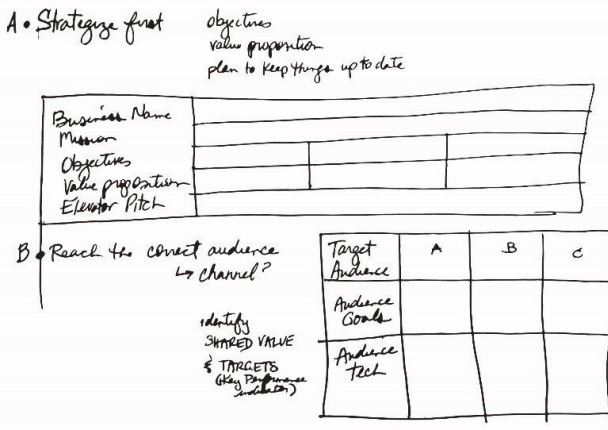 A • Strategize first
objectives
value proposition
plan to keep things up to date
Business Name
Mission
Objectives
Value proposition
Elevator Pitch
B • Reach the correct audience
↳ channel?
identify
SHARED VALUE
& TARGETS
(Key Performance
indicator)
Target
Audience
A
B
C
Audience
Goals
Audience
Tech